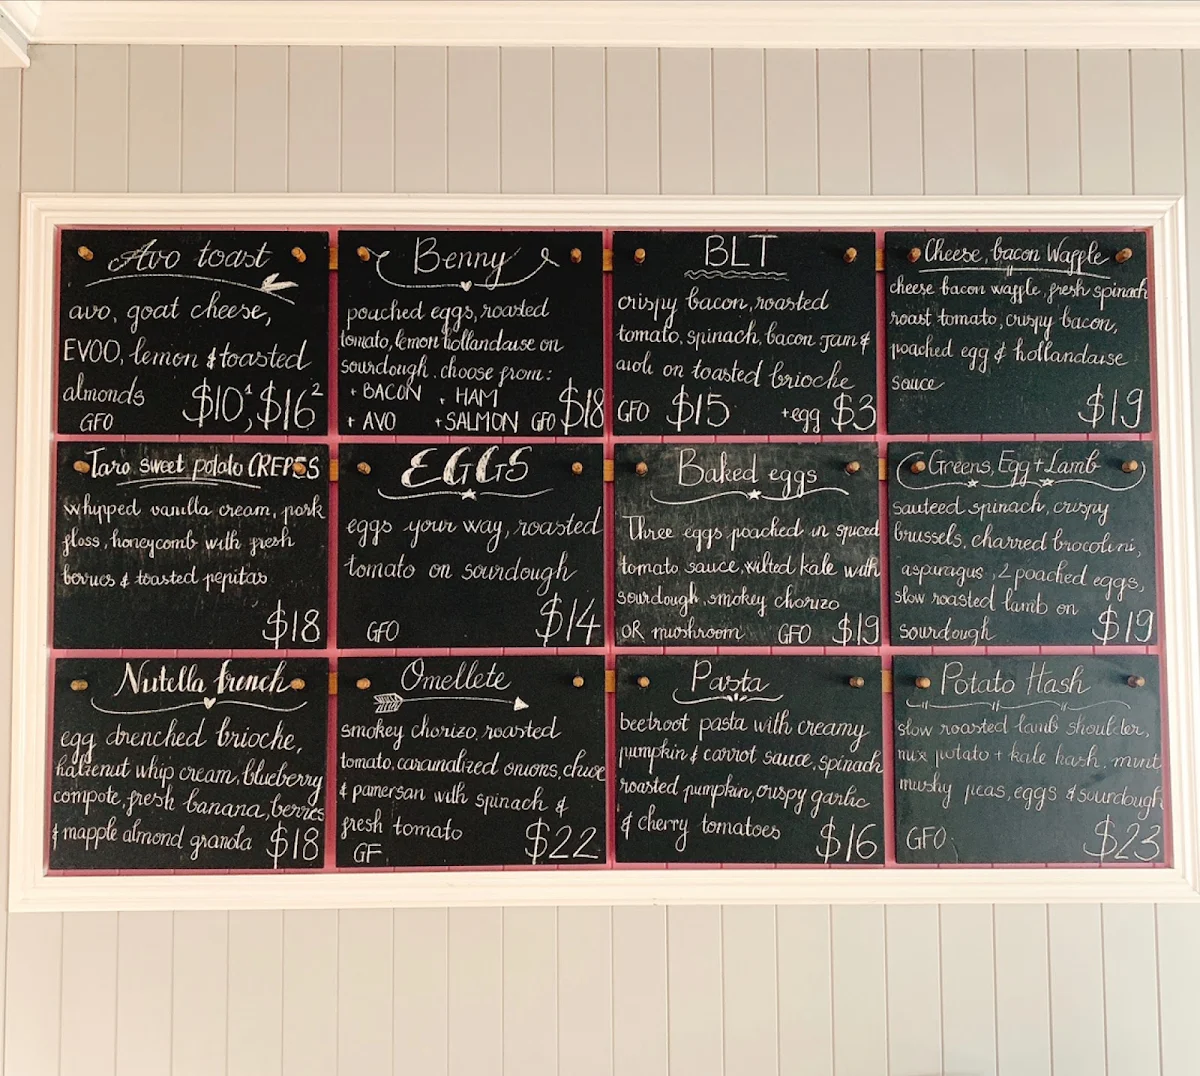 Avo toast
avo, goat cheese,
EVOO, lemon & toasted
almonds
GFO $10¹, $16²
Benny
pouched eggs, roasted
tomato, lemon hollandaise on
sourdough. choose from:
+ BACON + HAM
+ AVO + SALMON GFO $18
BLT
crispy bacon, roasted
tomato, spinach, bacon jam &
aioli on toasted brioche
GFO $15 +egg $3
Cheese, bacon Waffle
cheese bacon waffle, fresh spinach
roast tomato, crispy bacon,
poached egg & hollandaise
sauce
$19
Taro sweet potato CREPES
whipped vanilla cream, pork
floss, honeycomb with fresh
berries & toasted pepitas
$18
EGGS
eggs your way, roasted
tomato on sourdough
GFO $14
Baked eggs
Three eggs poached in spiced
tomato sauce, wilted kale with
sourdough, smokey chorizo
OR mushroom GFO $19
Greens, Egg + Lamb
sauteed spinach, crispy
brussels, charred brocolini,
asparagus, 2 poached eggs,
slow roasted lamb on
sourdough $19
Nutella french
egg drenched brioche,
halzenut whip cream, blueberry
compote, fresh banana, berries
& mapple almond granola $18
Omellete
smokey chorizo, roasted
tomato, caramalized onions, chive
& pamersan with spinach &
fresh tomato
GF $22
Pasta
beetroot pasta with creamy
pumpkin & carrot sauce, spinach
roasted pumpkin, crispy garlic
& cherry tomatoes $16
Potato Hash
slow roasted lamb shoulder,
mix potato + kale hash, mint
mushy peas, eggs & sourdough
GFO $23